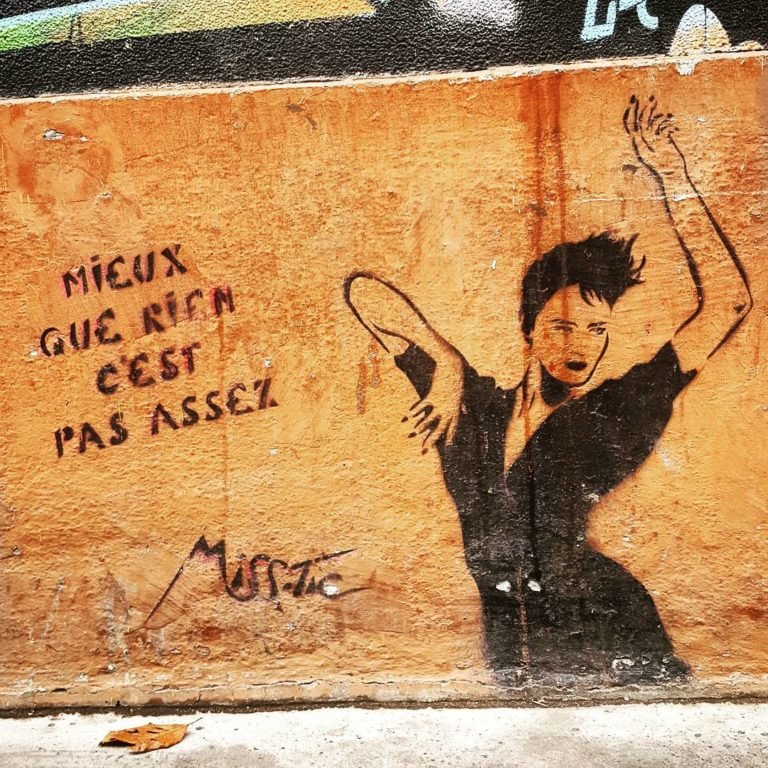 MIEUX
QUE RIEN
C'EST
PAS ASSEZ
Miss.Tic